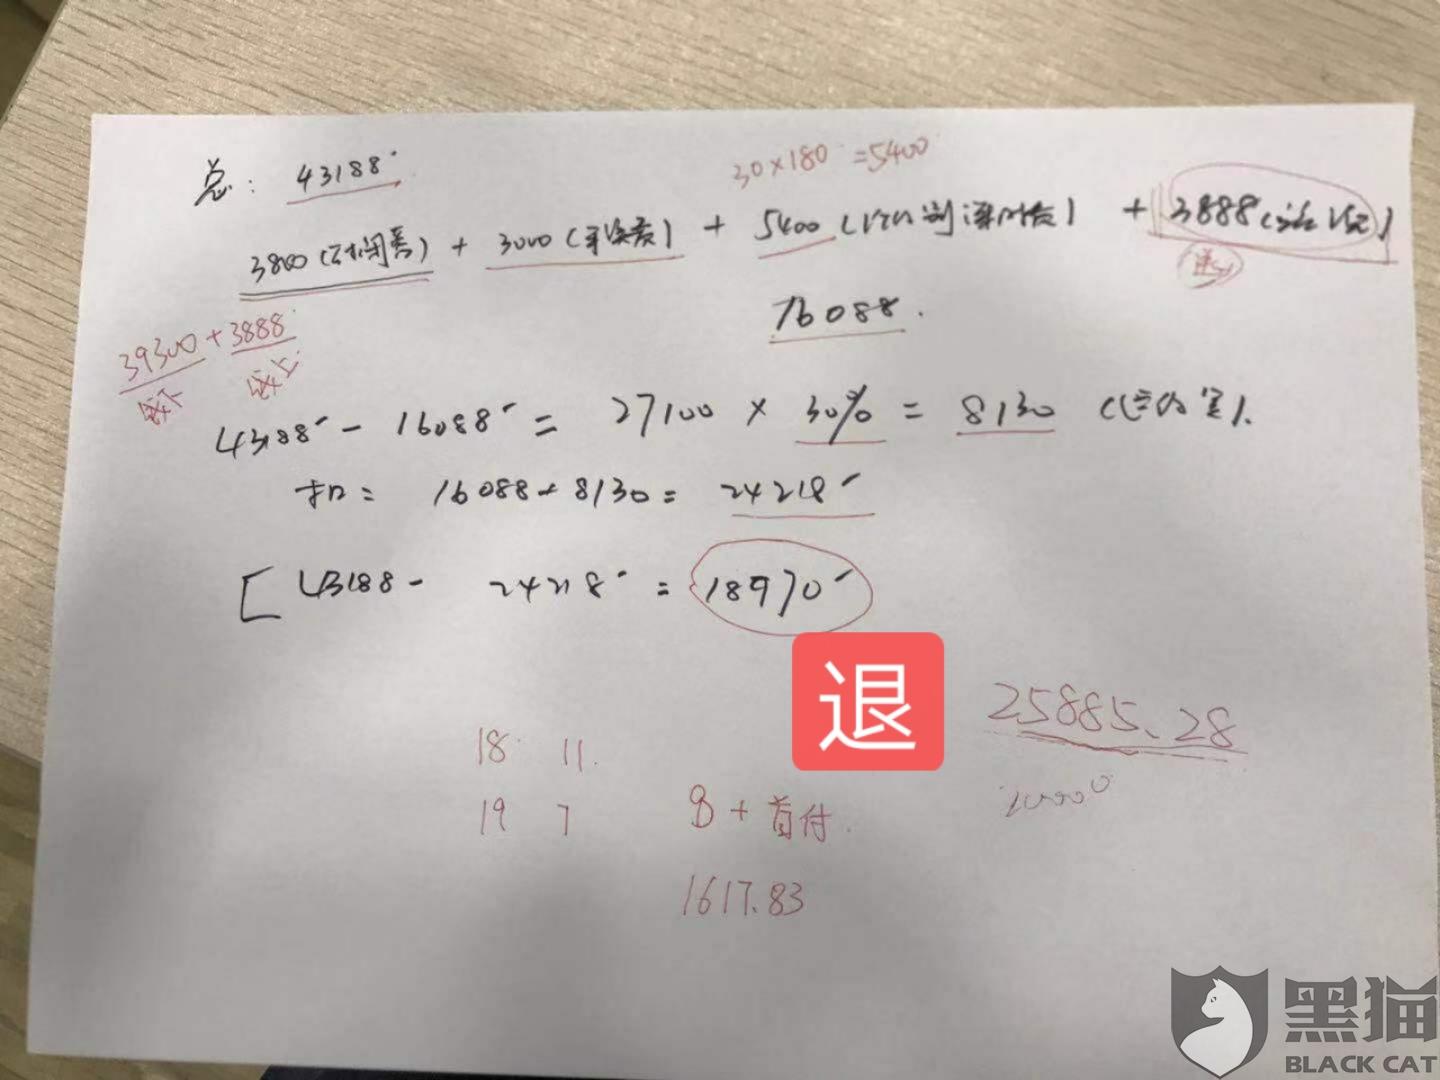 总: 43188
30×180=5400
3800 ( + 3000 ( 费) + 5400 ( 课时费) + 3888 (
16088.
39300+3888
线下 线上
43188-16088=27100×30%=8130 (
扣= 16088+8130=24218
[43188-24218=18970
退
25885.28
18 11.
10000
19 7 8+首付.
1617.83
黑猫
BLACK CAT